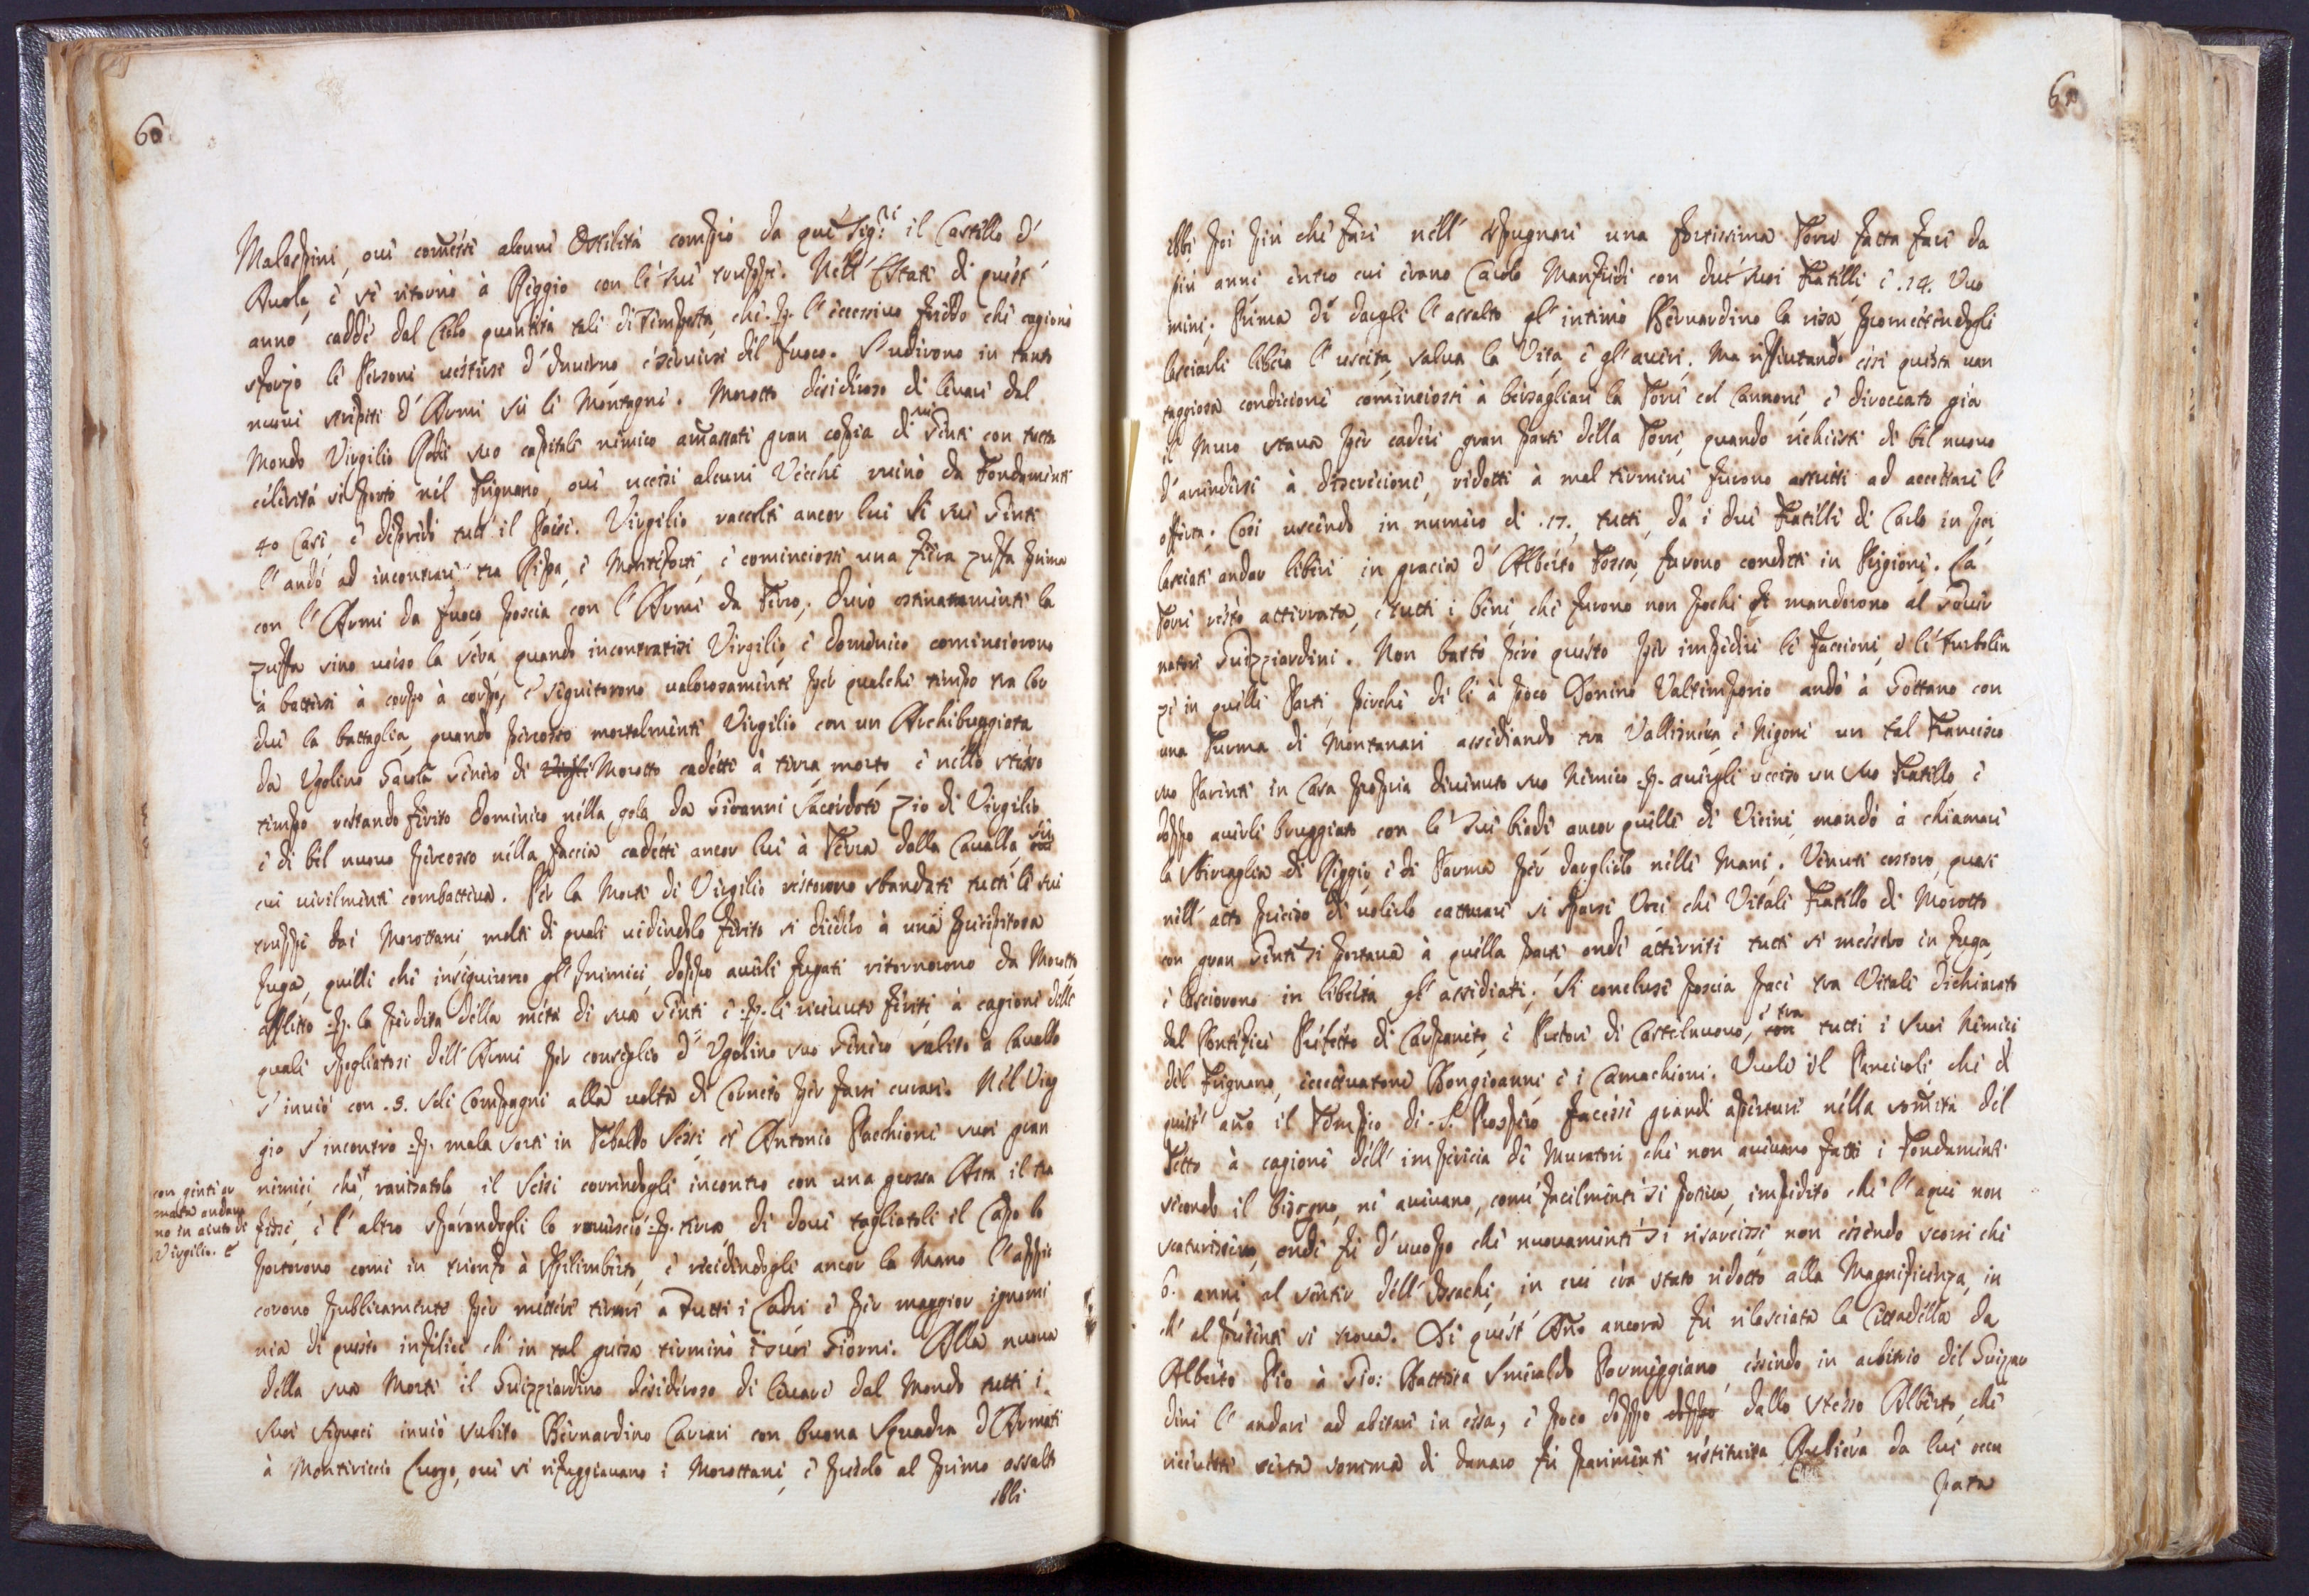 60
Malespini, oue comesse alcune Ostilità comprò da que Sig.ri il Castello d'
Auola, e se ritornò à Reggio con le sue truppe. Nell'Estate di quest'
anno cadde dal Cielo quantità tale di Tempesta, che p. l'eccessiuo freddo che cagionò
sforzò le Persone uestirse d'Inuerno, e seruirsi del fuoco. S'udirono in tanto
nuoui strepiti d'Armi sù le Montagne. Morotto desideroso di leuare dal
Mondo Virgilio Rodi suo capitale nemico amassate gran copia di Genti con tutta
celerità si portò nel Frignano, oue uccisi alcuni Vecchi ruinò da Fondamenti
40 Case, e depredò tutt'il Paese. Virgilio raccolte ancor lui le sue Genti
l'andò ad incontrare tra Ripa, e Monteforte, e cominciossi una fiera zuffa prima
con l'Armi da fuoco poscia con l'Armi da Ferro; durò ostinatamente la
zuffa sino uerso la sera, quando incontratisi Virgilio, e Domenico cominciorono
à battersi à corpo à corpo, e seguitorono ualorosamente per qualche tempo tra lor
due la battaglia, quando percosso mortalmente Virgilio con un Archibuggiata
da Ugolino Gaola Genero di Morotto cadette à terra morto, e nello stesso
tempo restando ferito Domenico nella gola da Giouanni Sacerdote zio di Virgilio
e di bel nuouo percosso nella faccia cadette ancor lui à Terra dalla Caualla, sù
cui uirilmente combatteua. Per la Morte di Virgilio restorono sbandate tutte le sue
truppe dai Morottani, molti di quali uedendolo ferito si diedero à una precipitosa
fuga, quelli che inseguirono gl'Inimici, doppo auerli fugati ritornorono da Morotto
afflitto p. la perdita della metà di sua Gente e p. le riceuute ferite, à cagione delle
quali spogliatosi dell'Armi per consiglio d'Ugolino suo Genero salito à Cauallo
s'inuiò con .3. soli Compagni alla uolta di Corneto per farsi curare. Nel Viag
gio s'incontrò p. mala sorte in Tebaldo Sessi, et Antonio Pacchioni suoi gran
nimici, che rauisatolo il Sessi correndogli incontro con una grossa Asta il tra
con genti ar
mata andaua
no in aiuto di
Virgilio. e
fisse, e l'altro sparandogli lo rouersciò p. terra, di doue tagliatoli il Capo lo
portorono come in trionfo à Spilimberto, e recidendogli ancor la Mano l'appic
corono publicamente per mettere terrore à Tutti i Ladri e per maggior ignomi
nia di questo infelice ch'in tal guisa terminò i suoi Giorni. Alla nuoua
della sua Morte il Guizziardino desideroso di leuare dal Mondo tutti i
suoi seguaci inuiò subito Bernardino Carrari con buona Squadra d'Armati
à Monteriecio Luogo, oue si rifuggiauano i Morottani, e presolo al primo assalto
ebbe
ebbe poi più che fare nell'espugnare una fortissima Torre fatta fare da
più anni entro cui erano Carlo Manfredi con due suoi Fratelli e .14. Uuo
mini. Prima di dargli l'assalto gl'intimò Bernardino la resa promettendogli
lasciarli libera l'uscita, salua la Vita, e gl'aueri. Ma rifiutando essi questa uan
taggiosa condicione cominciossi à bersagliare la Torre col Cannone, e diroccato già
il Muro staua per cadere gran parte della Torre, quando richiesti di bel nuouo
d'arrendersi à discrecione, ridotti à mal termine furono astretti ad accettare l'
offerta. Così uscendo in numero di .17. tutti, da i due Fratelli di Carlo in poi
lasciati andar liberi in gracia d'Alberto Tossa, furono condotti in Prigione. La
Torre restò atterrata, e tutti i beni, che furono non pochi si mandorono al Gouer
natore Guizziardini. Non bastò però questo per impedire le faccioni, e le turbolen
ze in quelle Parti, perche di li à poco Donino Valtemporio andò à Gottano con
una Turma di Montanari assediando tra Vallisnera, e Nigone un tal Francesco
suo Parente in Casa propria diuenuto suo Nemico p. auergli ucciso un suo Fratello, e
doppo auerli bruggiato con le sue biade ancor quelle di Vicini, mandò à chiamare
la Sbiraglia di Reggio, e di Parma per darglielo nelle Mani. Venuti costoro, quasi
nell'atto preciso di uolerlo catturare si sparse Voce che Vitale Fratello di Morotto
con gran Gente si portaua à quella parte onde atterriti tutti si messero in fuga,
e lasciorono in libertà gl'assediati. Si concluse poscia pace tra Vitale dichiarato
dal Pontefice Prefetto di Carpaneto, e Pretore di Castelnuouo, e tra tutti i Suoi Nemici
del Frignano, eccettuatone Bongioanni e i Camachioni. Vuole il Pancirolo che di
quest'año il Tempio di .S. Prospero facesse grandi aperture nella somità del
Tetto à cagione dell'impericia di Muratori, che non aueuano fatti i Fondamenti
secondo il bisogno, ne aueuano, come facilmente si poteua, impedito che l'aque non
scaturissero, onde fù d'uuopo che nuouamente si risarcisse non essendo scorsi che
6. anni, al sentir dell'Isacchi, in cui era stato ridotto alla Magnificenza, in
ch'al presente si troua. Di quest'Año ancora fù rilasciata la Cittadella da
Alberto Pio à Gio: Battista Smeraldo Parmeggiano, essendo in arbitrio del Guizzar
dini l'andare ad abitare in essa, e poco doppo dallo Stesso Alberto, che
riceuette certa somma di danaro fù parimente restituita Rubiera da lui occu
pata